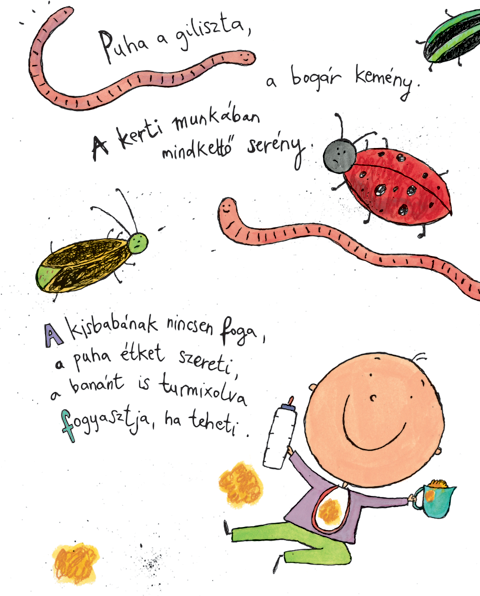 Puha a giliszta,
a bogár kemény.
A kerti munkában
mindkettő serény.
A kisbabának nincsen foga,
a puha étket szereti,
a banánt is turmixolva
fogyasztja, ha teheti.